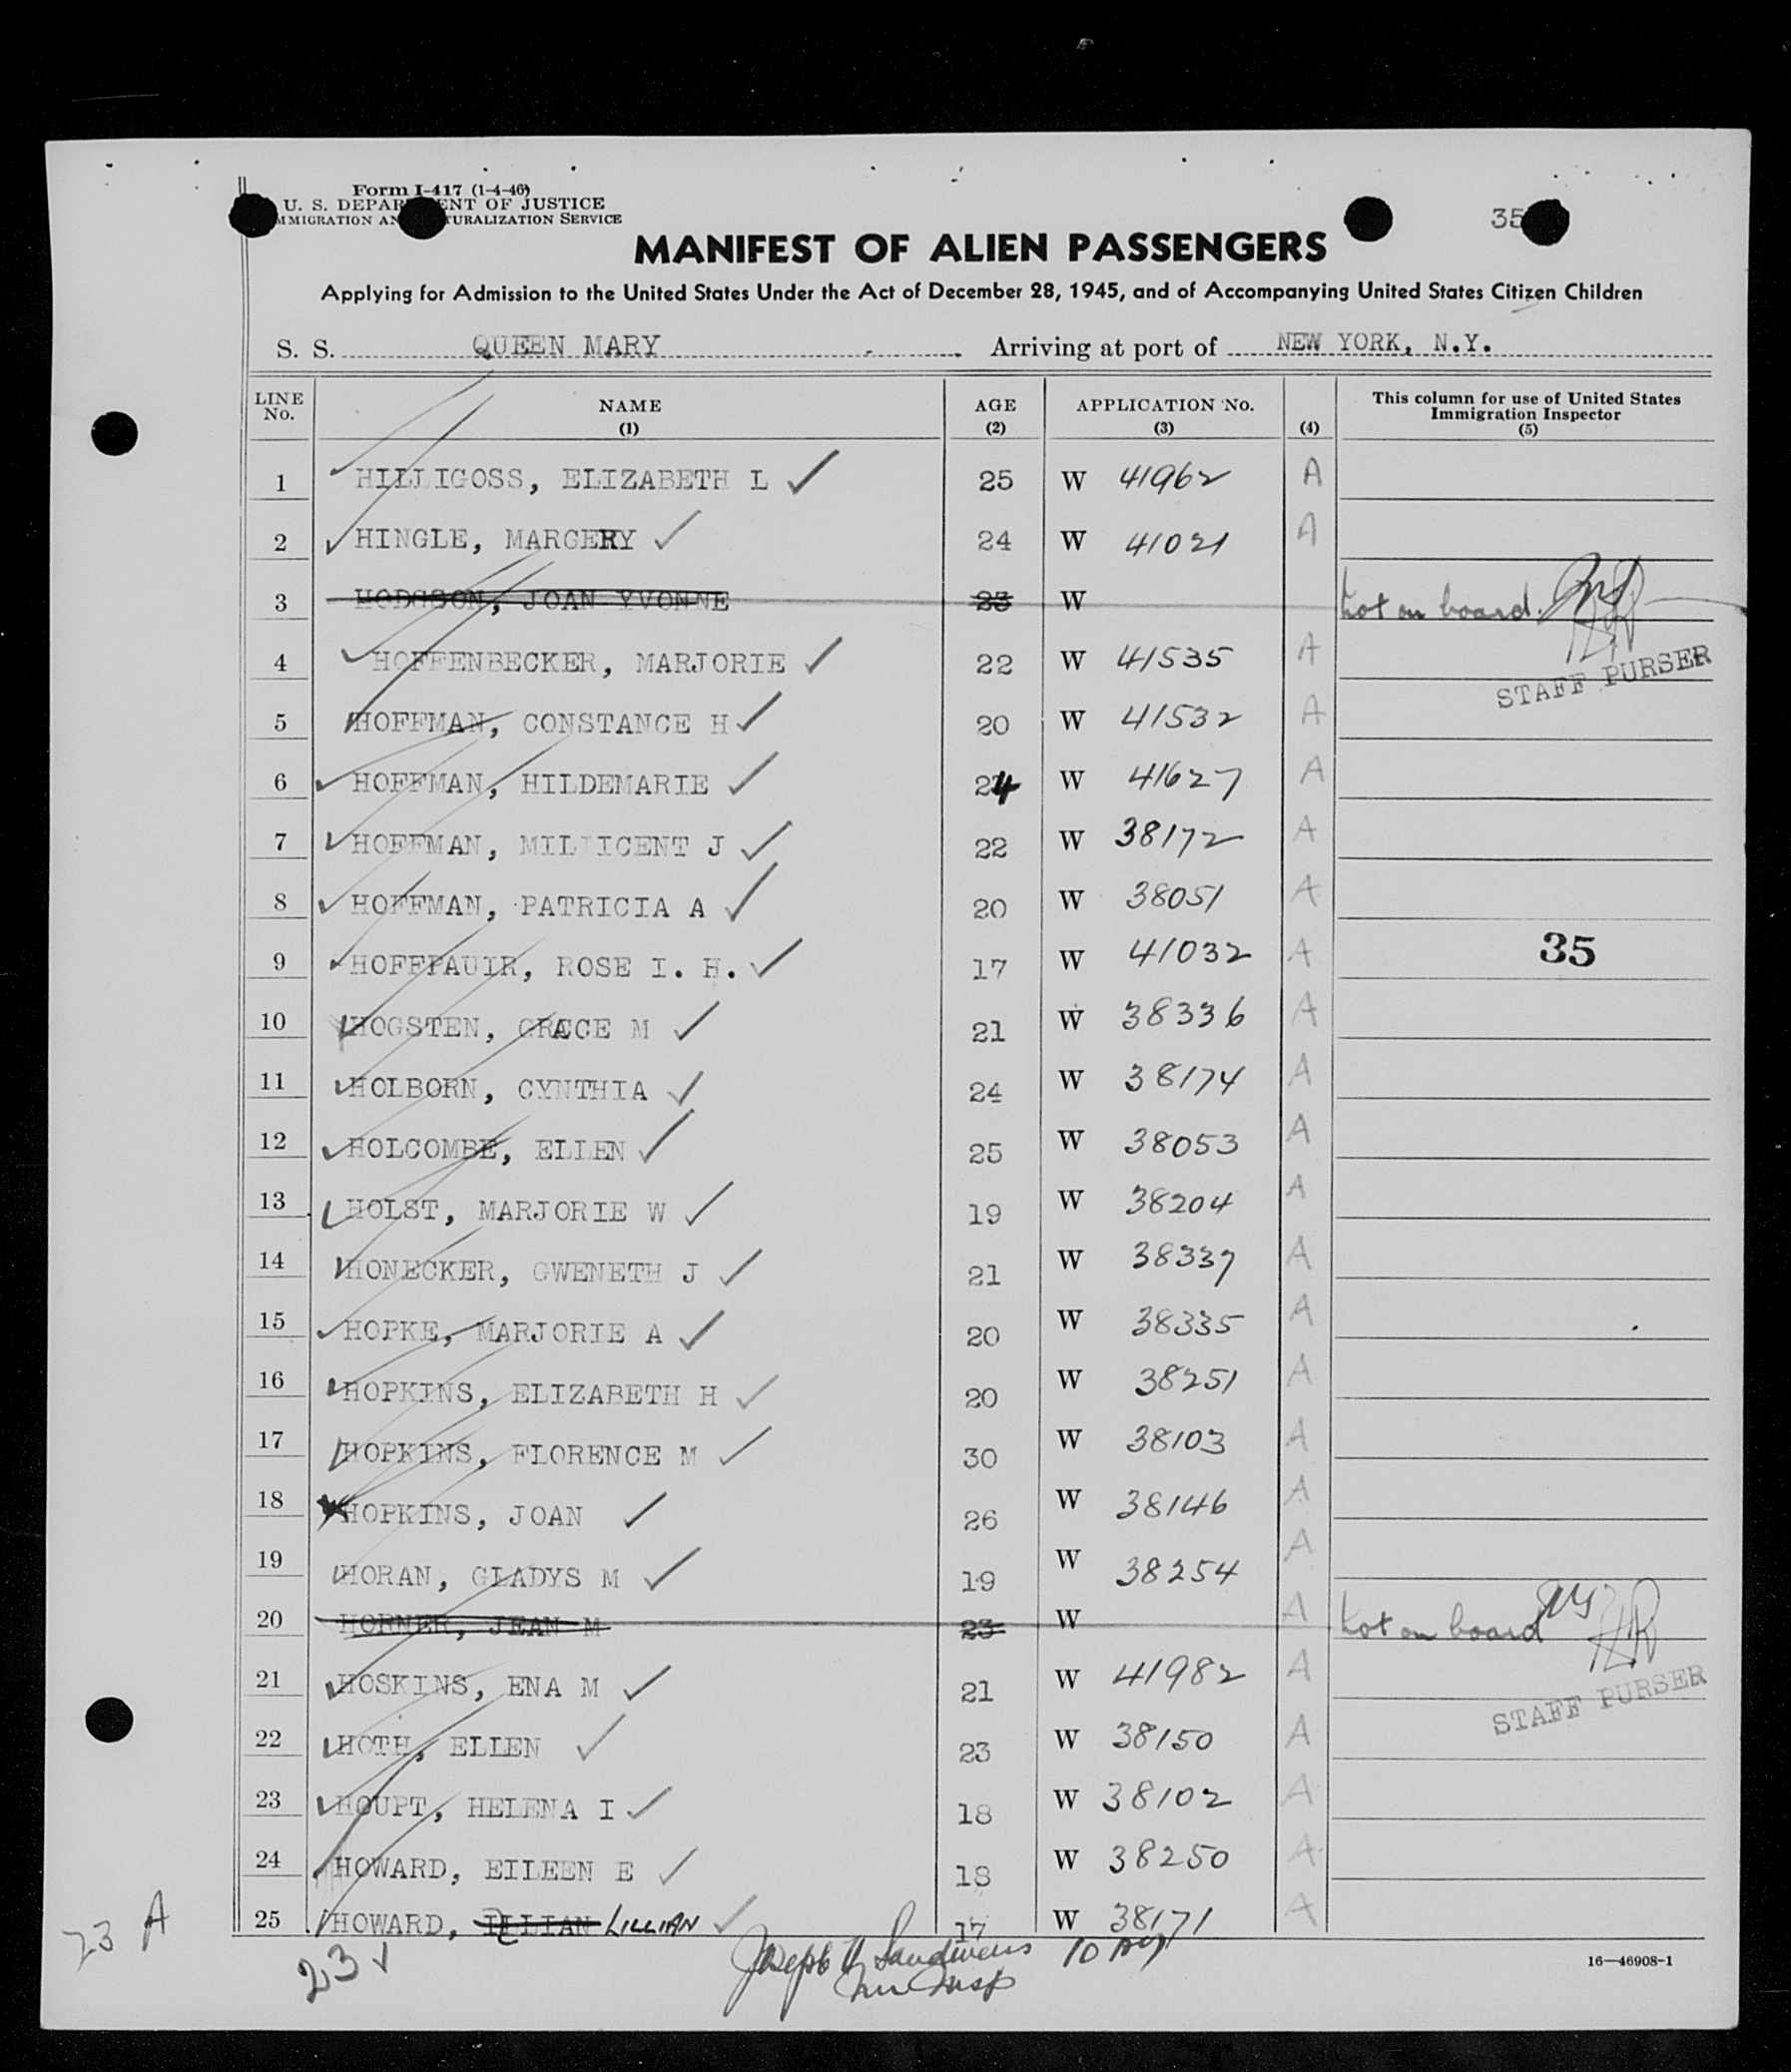 Form I-417 (1-4-46)
U. S. DEPARTMENT OF JUSTICE
IMMIGRATION AND NATURALIZATION SERVICE
35
MANIFEST OF ALIEN PASSENGERS
Applying for Admission to the United States Under the Act of December 28, 1945, and of Accompanying United States Citizen Children
S. S. QUEEN MARY Arriving at port of NEW YORK, N.Y.
LINE No. NAME (1) AGE (2) APPLICATION No. (3) (4) This column for use of United States Immigration Inspector (5)
1 HILLIGOSS, ELIZABETH L 25 W 41962 A
2 HINGLE, MARGERY 24 W 41021 A
3 HODGSON, JOAN YVONNE 23 W Not on board.
4 HOFFENBECKER, MARJORIE 22 W 41535 A
STAFF PURSER
5 HOFFMAN, CONSTANCE H 20 W 41532 A
6 HOFFMAN, HILDEMARIE 24 W 41627 A
7 HOFFMAN, MILLICENT J 22 W 38172 A
8 HOFFMAN, PATRICIA A 20 W 38051 A
9 HOFFPAUIR, ROSE I. H. 17 W 41032 A 35
10 HOGSTEN, GRACE M 21 W 38336 A
11 HOLBORN, CYNTHIA 24 W 38174 A
12 HOLCOMBE, ELLEN 25 W 38053 A
13 HOLST, MARJORIE W 19 W 38204 A
14 HONECKER, GWENETH J 21 W 38337 A
15 HOPKE, MARJORIE A 20 W 38335 A
16 HOPKINS, ELIZABETH H 20 W 38251 A
17 HOPKINS, FLORENCE M 30 W 38103 A
18 HOPKINS, JOAN 26 W 38146 A
19 HORAN, GLADYS M 19 W 38254 A
20 HORNER, JEAN M 23 W A Not on board
21 HOSKINS, ENA M 21 W 41982 A
STAFF PURSER
22 HOTH, ELLEN 23 W 38150 A
23 HOUPT, HELENA I 18 W 38102 A
24 HOWARD, EILEEN E 18 W 38250 A
25 HOWARD, LILLIAN 17 W 38171 A
23 A
23
Joseph H 10 Aug
Imm Insp
16—46908-1